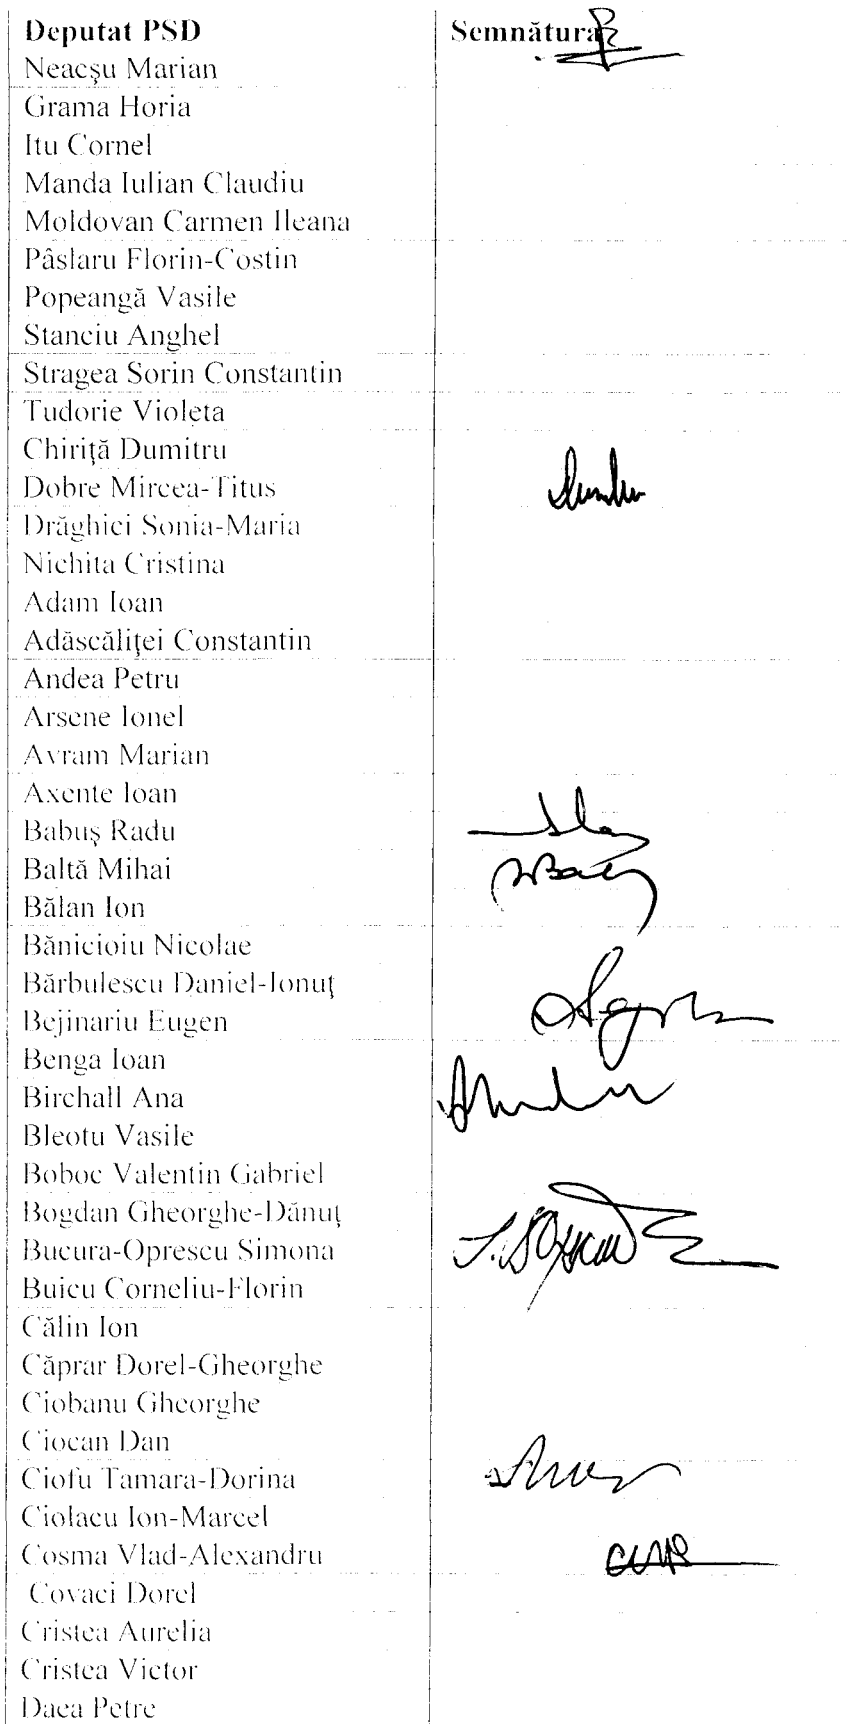 Deputat PSD Semnătura
Neacşu Marian
Grama Horia
Itu Cornel
Manda Iulian Claudiu
Moldovan Carmen Ileana
Pâslaru Florin-Costin
Popeangă Vasile
Stanciu Anghel
Stragea Sorin Constantin
Tudorie Violeta
Chiriţă Dumitru
Dobre Mircea-Titus
Drăghici Sonia-Maria
Nichita Cristina
Adam Ioan
Adăscăliţei Constantin
Andea Petru
Arsene Ionel
Avram Marian
Axente Ioan
Babuş Radu
Baltă Mihai
Bălan Ion
Bănicioiu Nicolae
Bărbulescu Daniel-Ionuţ
Bejinariu Eugen
Benga Ioan
Birchall Ana
Bleotu Vasile
Boboc Valentin Gabriel
Bogdan Gheorghe-Dănuţ
Bucura-Oprescu Simona
Buicu Corneliu-Florin
Călin Ion
Căprar Dorel-Gheorghe
Ciobanu Gheorghe
Ciocan Dan
Ciofu Tamara-Dorina
Ciolacu Ion-Marcel
Cosma Vlad-Alexandru
Covaci Dorel
Cristea Aurelia
Cristea Victor
Daea Petre